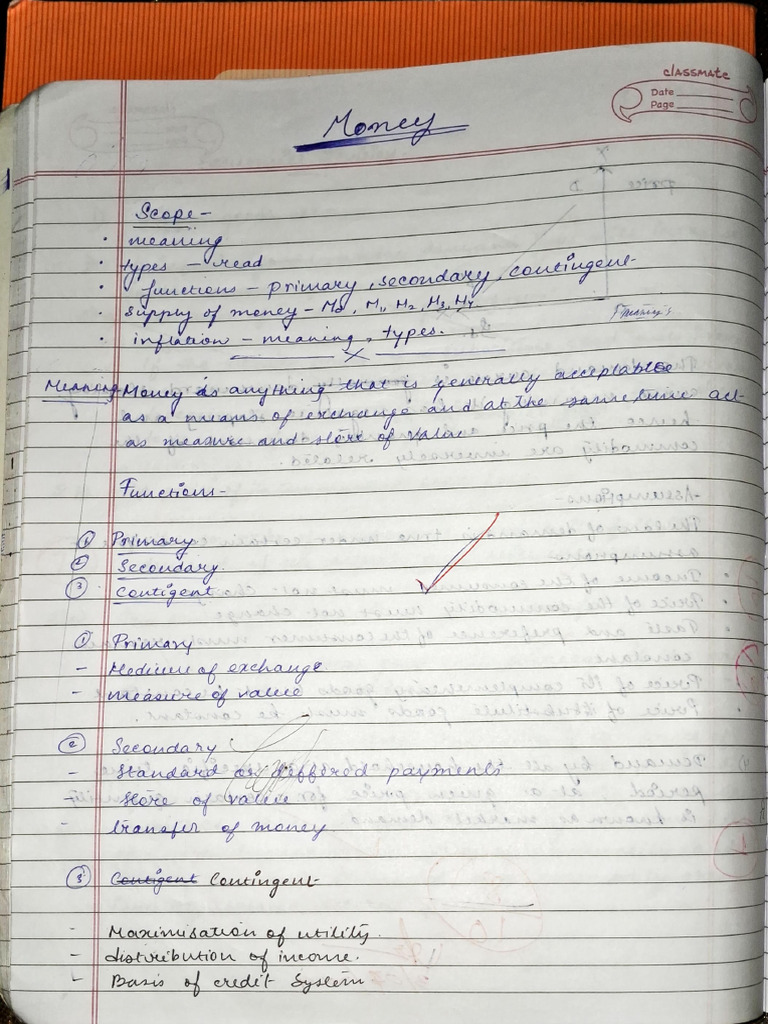 classmate
Date
Page
Money
Scope-
· meaning
· types - read
· functions - primary, secondary, contingent
· Supply of money - M0, M1, M2, M3, M4
· inflation - meaning, types.
Meaning Money is anything that is generally acceptable
as a means of exchange and at the same time act
as measure and store of value
Functions-
① Primary
② Secondary.
③ Contigent
① Primary
- Medium of exchange
- measure of value
② Secondary
- Standard of deffered payments
- Store of value
- transfer of money.
③ Contigent Contingent
- Maximisation of utility.
- distribution of income.
- Basis of credit System